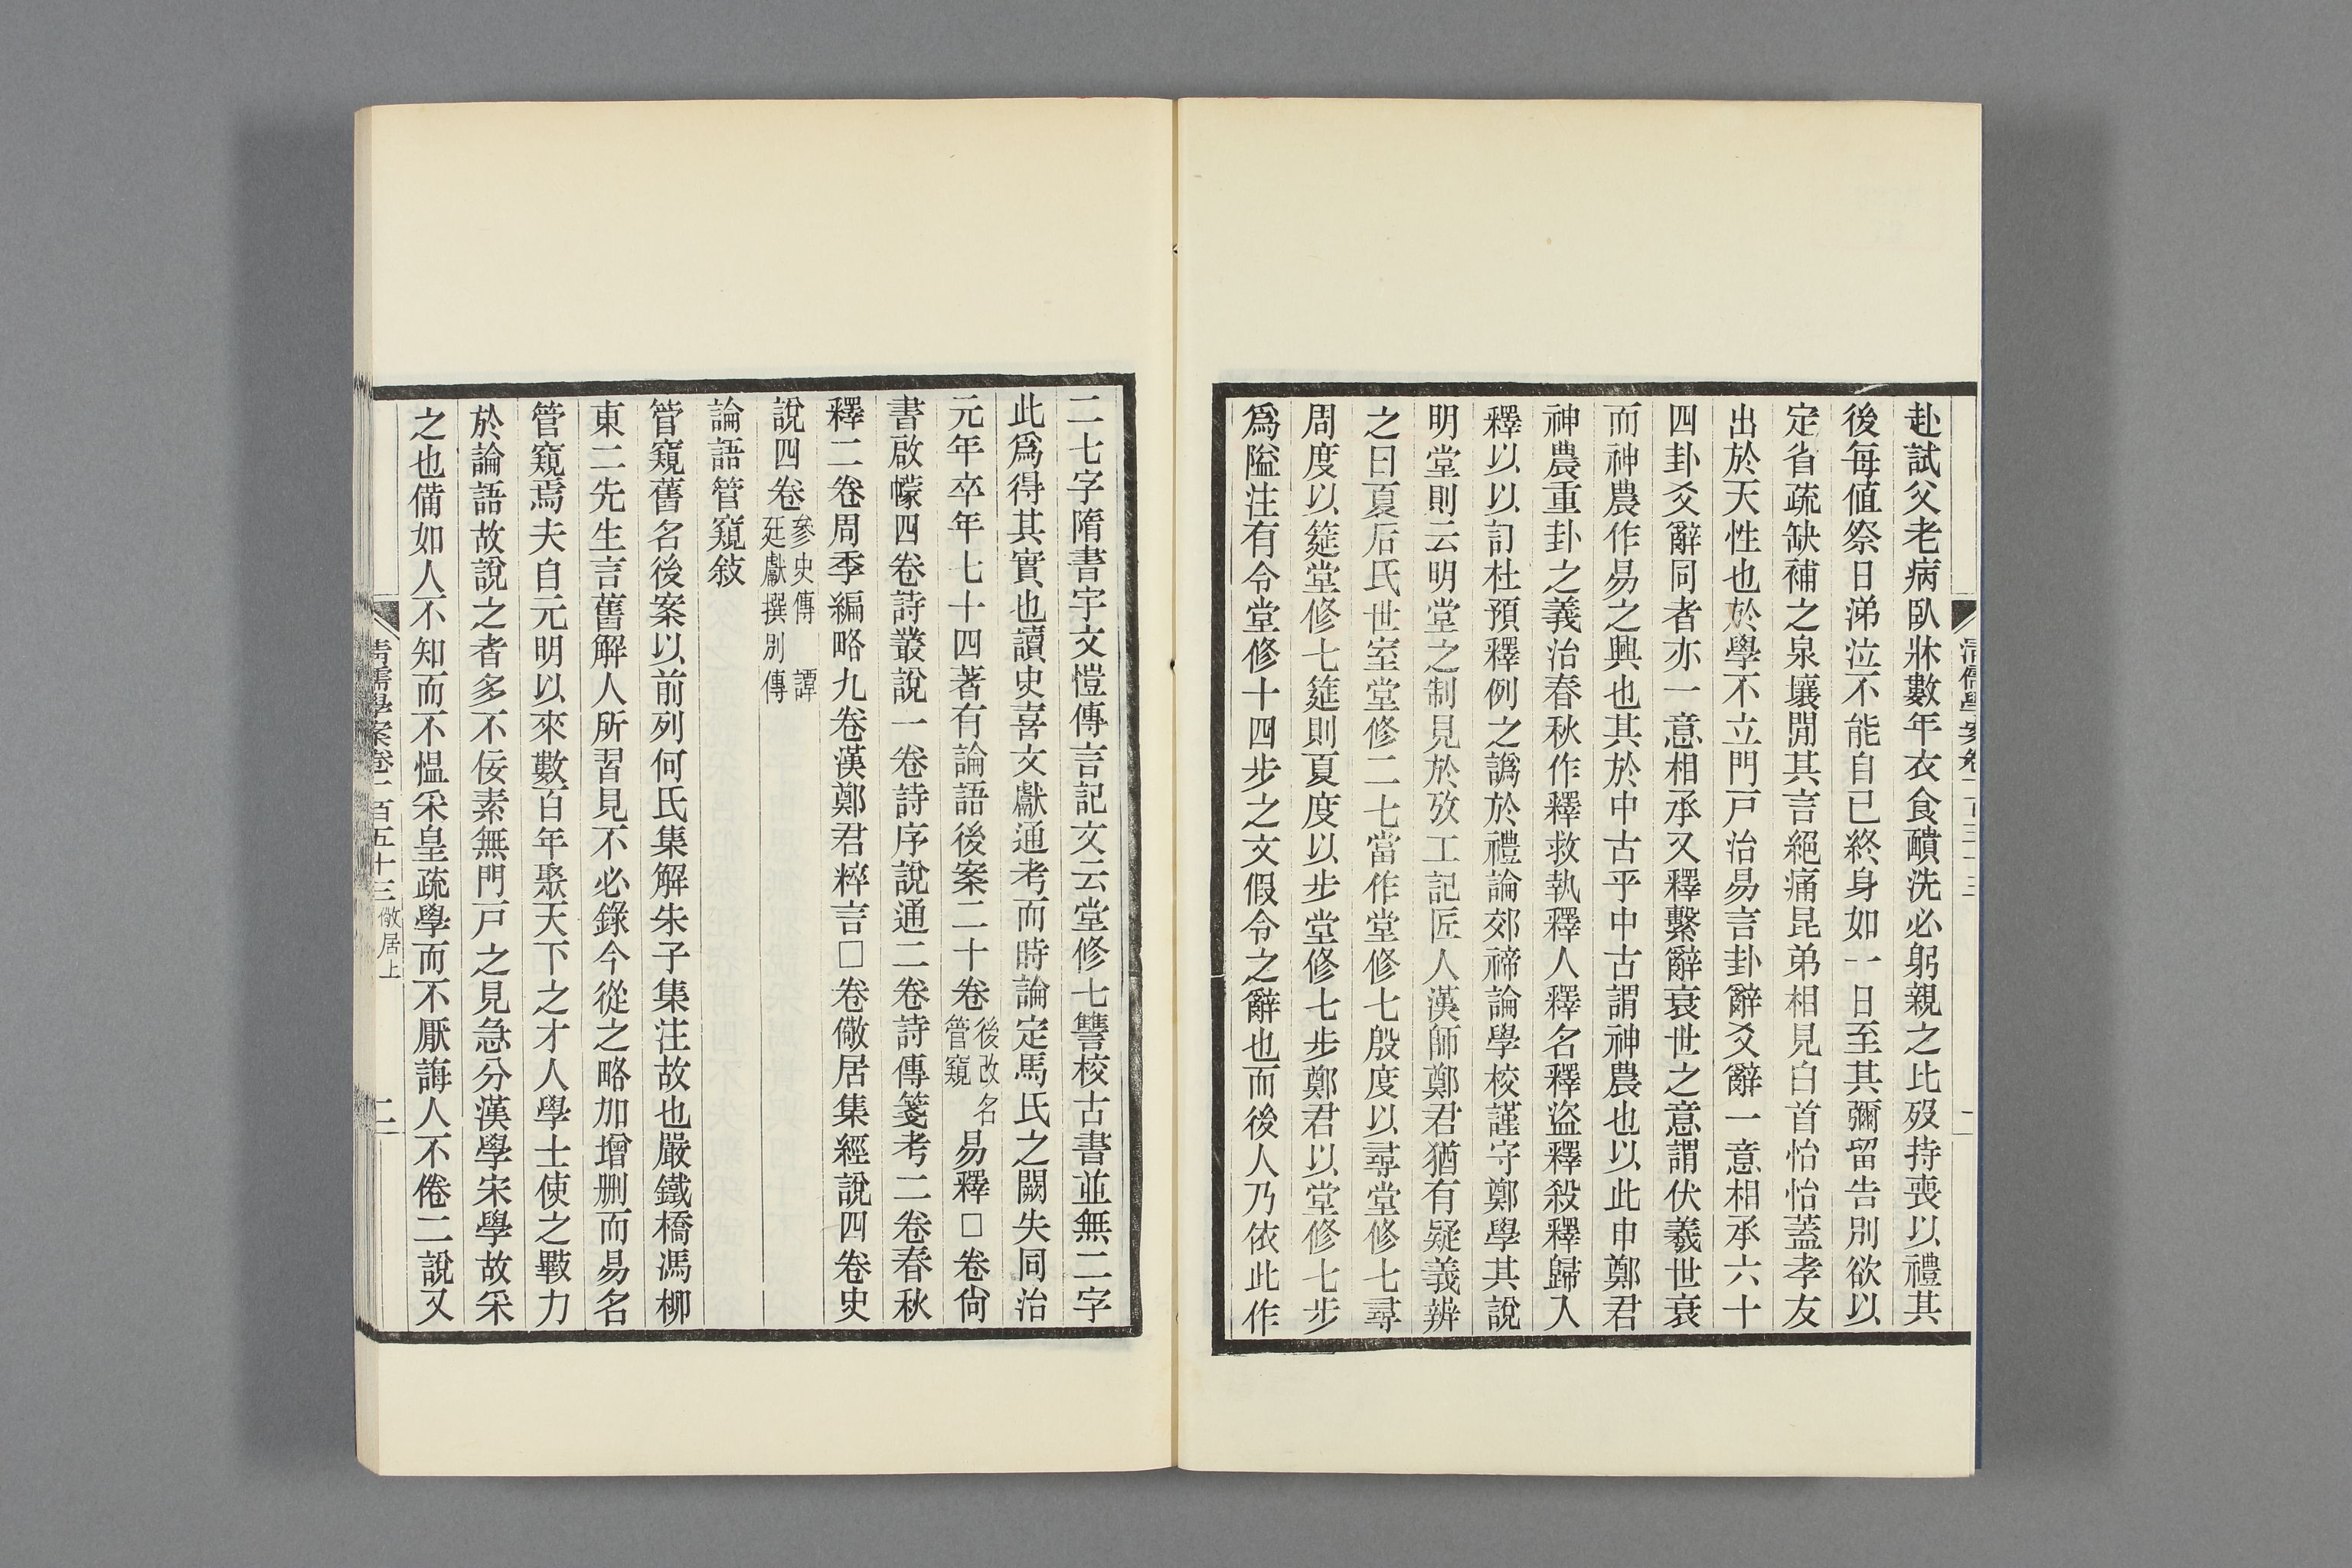 赴試父老病臥牀數年衣食醻洗必躬親之比歿持喪以禮其
後每值祭日涕泣不能自已終身如一日至其彌留告別欲以
定省疏缺補之泉壤閒其言絕痛昆弟相見白首怡怡蓋孝友
出於天性也於學不立門戸治易言卦辭爻辭一意相承六十
四卦爻辭同者亦一意相承又釋繫辭衰世之意謂伏羲世衰
而神農作易之興也其於中古乎中古謂神農也以此申鄭君
神農重卦之義治春秋作釋救執釋人釋名釋盜釋殺釋歸入
釋以以訂杜預釋例之譌於禮論郊禘論學校謹守鄭學其說
明堂則云明堂之制見於攷工記匠人漢師鄭君猶有疑義辨
之曰夏后氏世室堂修二七當作堂修七殷度以尋堂修七尋
周度以筵堂修七筵則夏度以步堂修七步鄭君以堂修七步
爲隘注有令堂修十四步之文假令之辭也而後人乃依此作
二七字隋書宇文愷傳言記文云堂修七讐校古書並無二字
此爲得其實也讀史喜文獻通考而時論定馬氏之闕失同治
元年卒年七十四著有論語後案二十卷後改名管窺易釋□卷尙
書啟幪四卷詩叢說一卷詩序說通二卷詩傳箋考二卷春秋
釋二卷周季編略九卷漢鄭君粹言□卷儆居集經說四卷史
說四卷參史傳 譚廷獻撰別傳
論語管窺敍
管窺舊名後案以前列何氏集解朱子集注故也嚴鐵橋馮柳
東二先生言舊解人所習見不必錄今從之略加增刪而易名
管窺焉夫自元明以來數百年聚天下之才人學士使之戰力
於論語故說之者多不佞素無門戸之見急分漢學宋學故采
之也備如人不知而不慍采皇疏學而不厭誨人不倦二說又
清儒學案卷一百五十三 儆居上 二